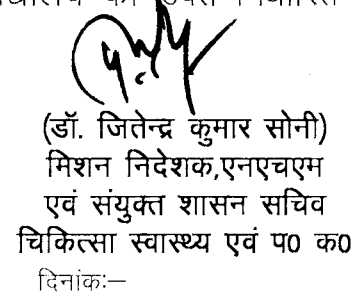 (डॉ. जितेन्द्र कुमार सोनी)
मिशन निदेशक,एनएचएम
एवं संयुक्त शासन सचिव
चिकित्सा स्वास्थ्य एवं प0 क0
दिनांकः–